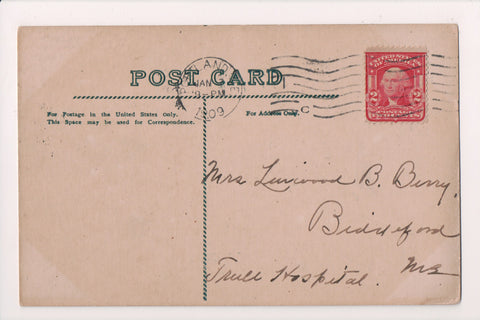 POST CARD
JAN
PM
1909
For Postage in the United States only.
This Space may be used for Correspondence.
For Address Only.
C
2 2
Mrs Linwood B. Berry.
Biddeford
Trull Hospital. Me